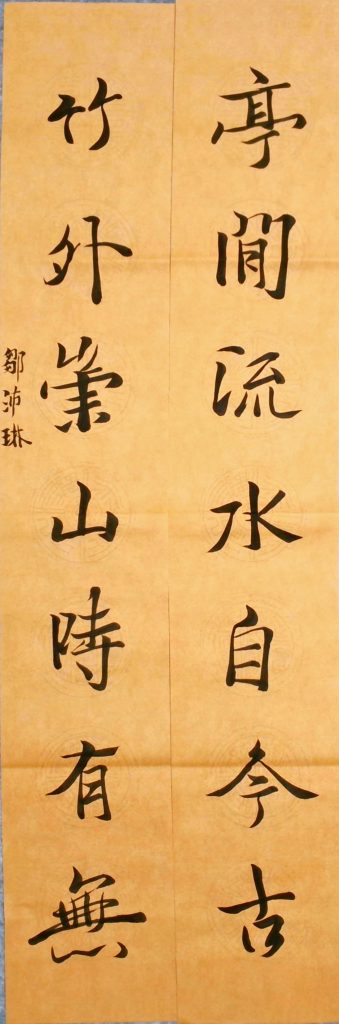 亭間流水自今古
竹外崇山時有無
鄒沛琳